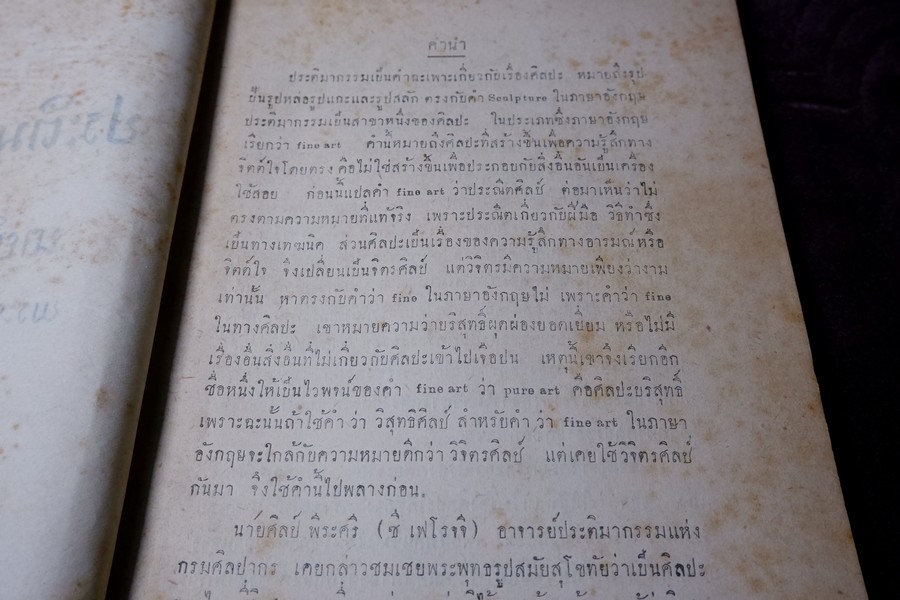 คำนำ
ประติมากรรมเป็นคำฉะเพาะเกี่ยวกับเรื่องศิลปะ หมายถึงรูป
ปั้นรูปหล่อรูปแกะและรูปสลัก ตรงกับคำ Sculpture ในภาษาอังกฤษ
ประติมากรรมเป็นสาขาหนึ่งของศิลปะ ในประเภทซึ่งภาษาอังกฤษ
เรียกว่า fine art คำนี้หมายถึงศิลปะที่สร้างขึ้นเพื่อความรู้สึกทาง
จิตต์ใจโดยตรง คือไม่ใช่สร้างขึ้นเพื่อประกอบกับสิ่งอื่นอันเป็นเครื่อง
ใช้สอย ก่อนนี้แปลคำ fine art ว่าประณีตศิลป์ ต่อมาเห็นว่าไม่
ตรงตามความหมายที่แท้จริง เพราะประณีตเกี่ยวกับฝีมือ วิธีทำซึ่ง
เป็นทางเทฆนิค ส่วนศิลปะเป็นเรื่องของความรู้สึกทางอารมณ์หรือ
จิตต์ใจ จึงเปลี่ยนเป็นวิจิตรศิลป์ แต่วิจิตรมีความหมายเพียงว่างาม
เท่านั้น หาตรงกับคำว่า fine ในภาษาอังกฤษไม่ เพราะคำว่า fine
ในทางศิลปะ เขาหมายความว่าบริสุทธิ์ผุดผ่องยอดเยี่ยม หรือไม่มี
เรื่องอื่นสิ่งอื่นที่ไม่เกี่ยวกับศิลปะเข้าไปเจือปน เหตุนี้เขาจึงเรียกอีก
ชื่อหนึ่งให้เป็นไวพจน์ของคำ fine art ว่า pure art คือศิลปะบริสุทธิ์
เพราะฉะนั้นถ้าใช้คำ ว่า วิสุทธิศิลป์ สำหรับคำ ว่า fine art ในภาษา
อังกฤษจะใกล้กับความหมายดีกว่า วิจิตรศิลป์ แต่เคยใช้วิจิตรศิลป์
กันมา จึงใช้คำนี้ไปพลางก่อน.
นายศิลป์ พีระศรี (ซี เฟโรจจี) อาจารย์ประติมากรรมแห่ง
กรมศิลปากร เคยกล่าวชมเชยพระพุทธรูปสมัยสุโขทัยว่าเป็นศิลปะ